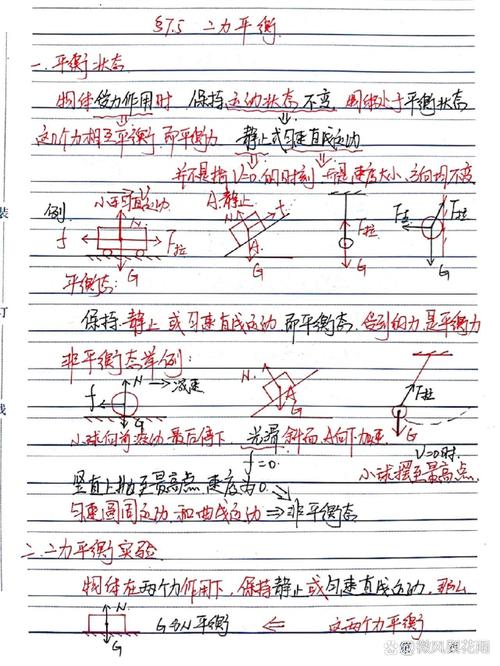 §7.5 二力平衡
一.平衡状态
物体受力作用时 保持运动状态不变 物体处于平衡状态
这几个力相互平衡,即平衡力 静止或匀速直线运动
并不是指V=0的时刻 并且速度大小、方向均不变
例: 小车匀速运动 A静止
N f F拉 G
f A G
F拉 G
F F拉 G
平衡态:
保持静止 或 匀速直线运动,即平衡态,受到的力是平衡力
非平衡态举例:
N 减速 f G
N A G
F拉 G V=0时.
小球向前滚动最后停下. 光滑斜面,A向下加速. 小球摆至最高点.
f=0.
竖直上抛至最高点,速度为0.
匀速圆周运动和曲线运动 ⇒ 非平衡态
二.二力平衡实验
物体在两个力作用下,保持静止或匀速直线运动,那么
N G G与N平衡 ⇐ 这两个力平衡